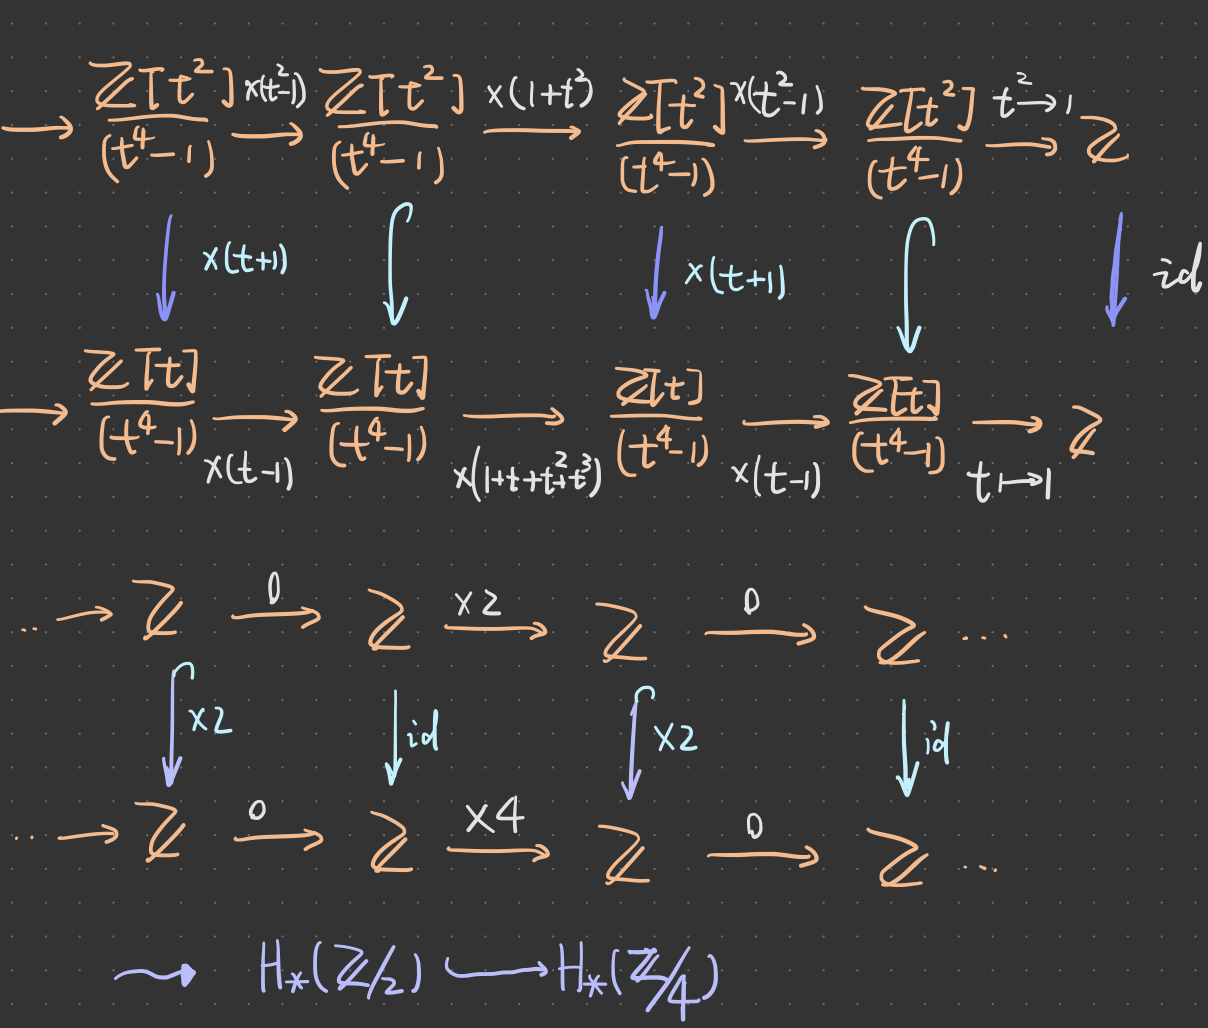 → ℤ[t²]/(t⁴-1) ×(t²-1)→ ℤ[t²]/(t⁴-1) ×(1+t²)→ ℤ[t²]/(t⁴-1) ×(t²-1)→ ℤ[t²]/(t⁴-1) t²→1→ ℤ
↓ ×(t+1) ↓ ↓ ×(t+1) ↓ ↓ id
→ ℤ[t]/(t⁴-1) →×(t-1) ℤ[t]/(t⁴-1) →×(1+t+t²+t³) ℤ[t]/(t⁴-1) →×(t-1) ℤ[t]/(t⁴-1) →t↦1 ℤ
·· → ℤ 0→ ℤ ×2→ ℤ 0→ ℤ ····
↓ ×2 ↓ id ↓ ×2 ↓ id
·· → ℤ 0→ ℤ ×4→ ℤ 0→ ℤ ···
⇝ H_*(ℤ/2) ↪ H_*(ℤ/4)